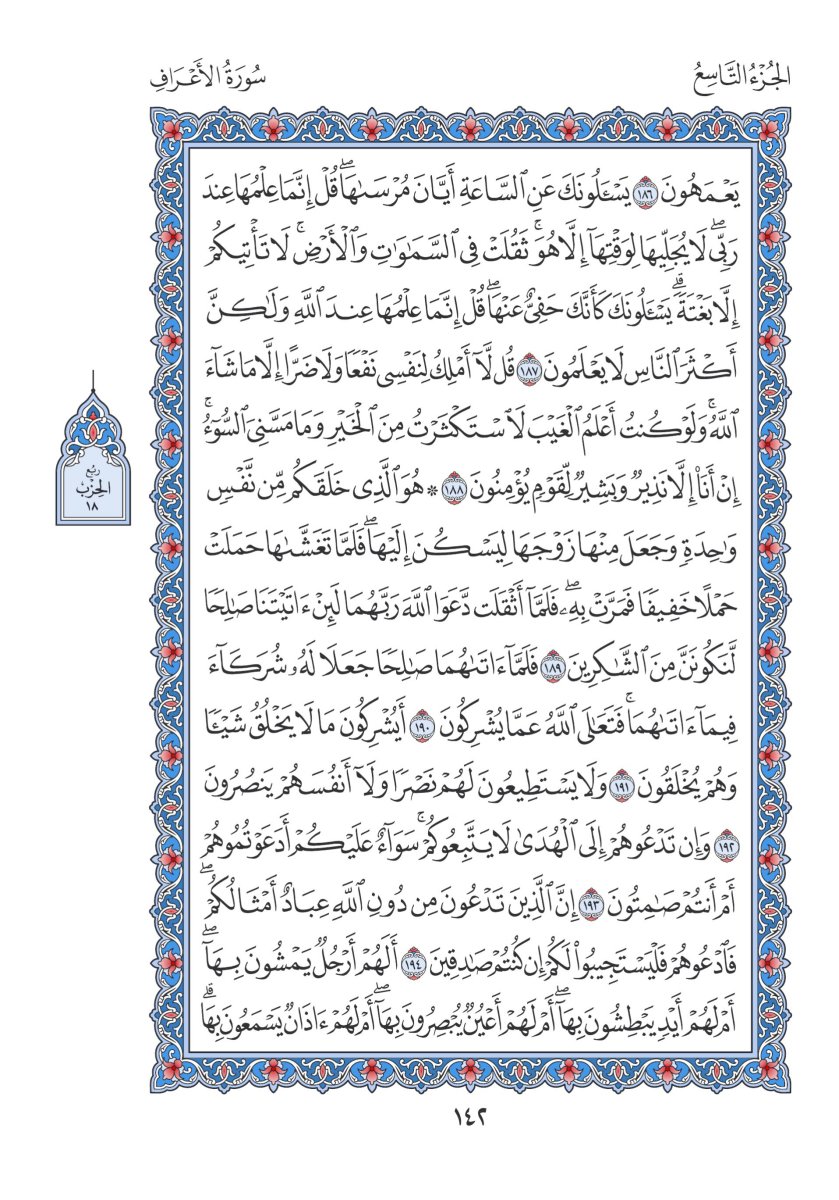 الجُزْءُ التَّاسِعُ
سُورَةُ الأَعْرَافِ
يَعْمَهُونَ ١٨٦ يَسْـَٔلُونَكَ عَنِ ٱلسَّاعَةِ أَيَّانَ مُرْسَىٰهَاۖ قُلْ إِنَّمَا عِلْمُهَا عِندَ
رَبِّيۖ لَا يُجَلِّيهَا لِوَقْتِهَآ إِلَّا هُوَۚ ثَقُلَتْ فِي ٱلسَّمَٰوَٰتِ وَٱلْأَرْضِۚ لَا تَأْتِيكُمْ
إِلَّا بَغْتَةٗۗ يَسْـَٔلُونَكَ كَأَنَّكَ حَفِيٌّ عَنْهَاۖ قُلْ إِنَّمَا عِلْمُهَا عِندَ ٱللَّهِ وَلَٰكِنَّ
أَكْثَرَ ٱلنَّاسِ لَا يَعْلَمُونَ ١٨٧ قُل لَّآ أَمْلِكُ لِنَفْسِي نَفْعٗا وَلَا ضَرًّا إِلَّا مَا شَآءَ
ٱللَّهُۚ وَلَوْ كُنتُ أَعْلَمُ ٱلْغَيْبَ لَٱسْتَكْثَرْتُ مِنَ ٱلْخَيْرِ وَمَا مَسَّنِيَ ٱلسُّوٓءُۚ
إِنْ أَنَا۠ إِلَّا نَذِيرٞ وَبَشِيرٞ لِّقَوْمٖ يُؤْمِنُونَ ١٨٨ ۞ هُوَ ٱلَّذِي خَلَقَكُم مِّن نَّفْسٖ
وَٰحِدَةٖ وَجَعَلَ مِنْهَا زَوْجَهَا لِيَسْكُنَ إِلَيْهَاۖ فَلَمَّا تَغَشَّىٰهَا حَمَلَتْ
حَمْلًا خَفِيفٗا فَمَرَّتْ بِهِۦۖ فَلَمَّآ أَثْقَلَت دَّعَوَا ٱللَّهَ رَبَّهُمَا لَئِنْ ءَاتَيْتَنَا صَٰلِحٗا
لَّنَكُونَنَّ مِنَ ٱلشَّٰكِرِينَ ١٨٩ فَلَمَّآ ءَاتَىٰهُمَا صَٰلِحٗا جَعَلَا لَهُۥ شُرَكَآءَ
فِيمَآ ءَاتَىٰهُمَاۚ فَتَعَٰلَى ٱللَّهُ عَمَّا يُشْرِكُونَ ١٩٠ أَيُشْرِكُونَ مَا لَا يَخْلُقُ شَيْـٔٗا
وَهُمْ يُخْلَقُونَ ١٩١ وَلَا يَسْتَطِيعُونَ لَهُمْ نَصْرٗا وَلَآ أَنفُسَهُمْ يَنصُرُونَ
١٩٢ وَإِن تَدْعُوهُمْ إِلَى ٱلْهُدَىٰ لَا يَتَّبِعُوكُمْۚ سَوَآءٌ عَلَيْكُمْ أَدَعَوْتُمُوهُمْ
أَمْ أَنتُمْ صَٰمِتُونَ ١٩٣ إِنَّ ٱلَّذِينَ تَدْعُونَ مِن دُونِ ٱللَّهِ عِبَادٌ أَمْثَالُكُمْۖ
فَٱدْعُوهُمْ فَلْيَسْتَجِيبُوا۟ لَكُمْ إِن كُنتُمْ صَٰدِقِينَ ١٩٤ أَلَهُمْ أَرْجُلٞ يَمْشُونَ بِهَآۖ
أَمْ لَهُمْ أَيْدٖ يَبْطِشُونَ بِهَآۖ أَمْ لَهُمْ أَعْيُنٞ يُبْصِرُونَ بِهَآۖ أَمْ لَهُمْ ءَاذَانٞ يَسْمَعُونَ بِهَاۗ
رُبُع
الحِزْب
١٨
١٤٢